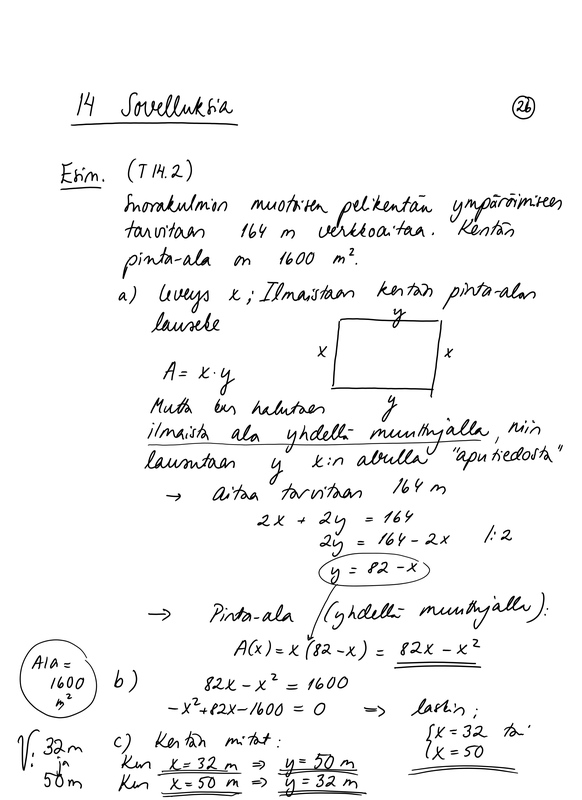 14 Sovelluksia
26
Esim. (T 14.2)
Suorakulmion muotoisen pelikentän ympäröimiseen
tarvitaan 164 m verkkoaitaa. Kentän
pinta-ala on 1600 m².
a) leveys x ; Ilmaistaan kentän pinta-alan
lauseke
y
x x
A = x · y
y
Mutta kun halutaan
ilmaista ala yhdellä muuttujalla, niin
lausutaan y x:n avulla "aputiedosta"
→ Aitaa tarvitaan 164 m
2x + 2y = 164
2y = 164 - 2x |:2
y = 82 - x
→ Pinta-ala (yhdellä muuttujalla):
A(x) = x (82 - x) = 82x - x²
Ala =
1600
m²
b) 82x - x² = 1600
-x² + 82x - 1600 = 0 ⇒ laskin:
{x = 32 tai
{x = 50
c) Kentän mitat:
Kun x = 32 m ⇒ y = 50 m
Kun x = 50 m ⇒ y = 32 m
V: 32 m
ja
50 m